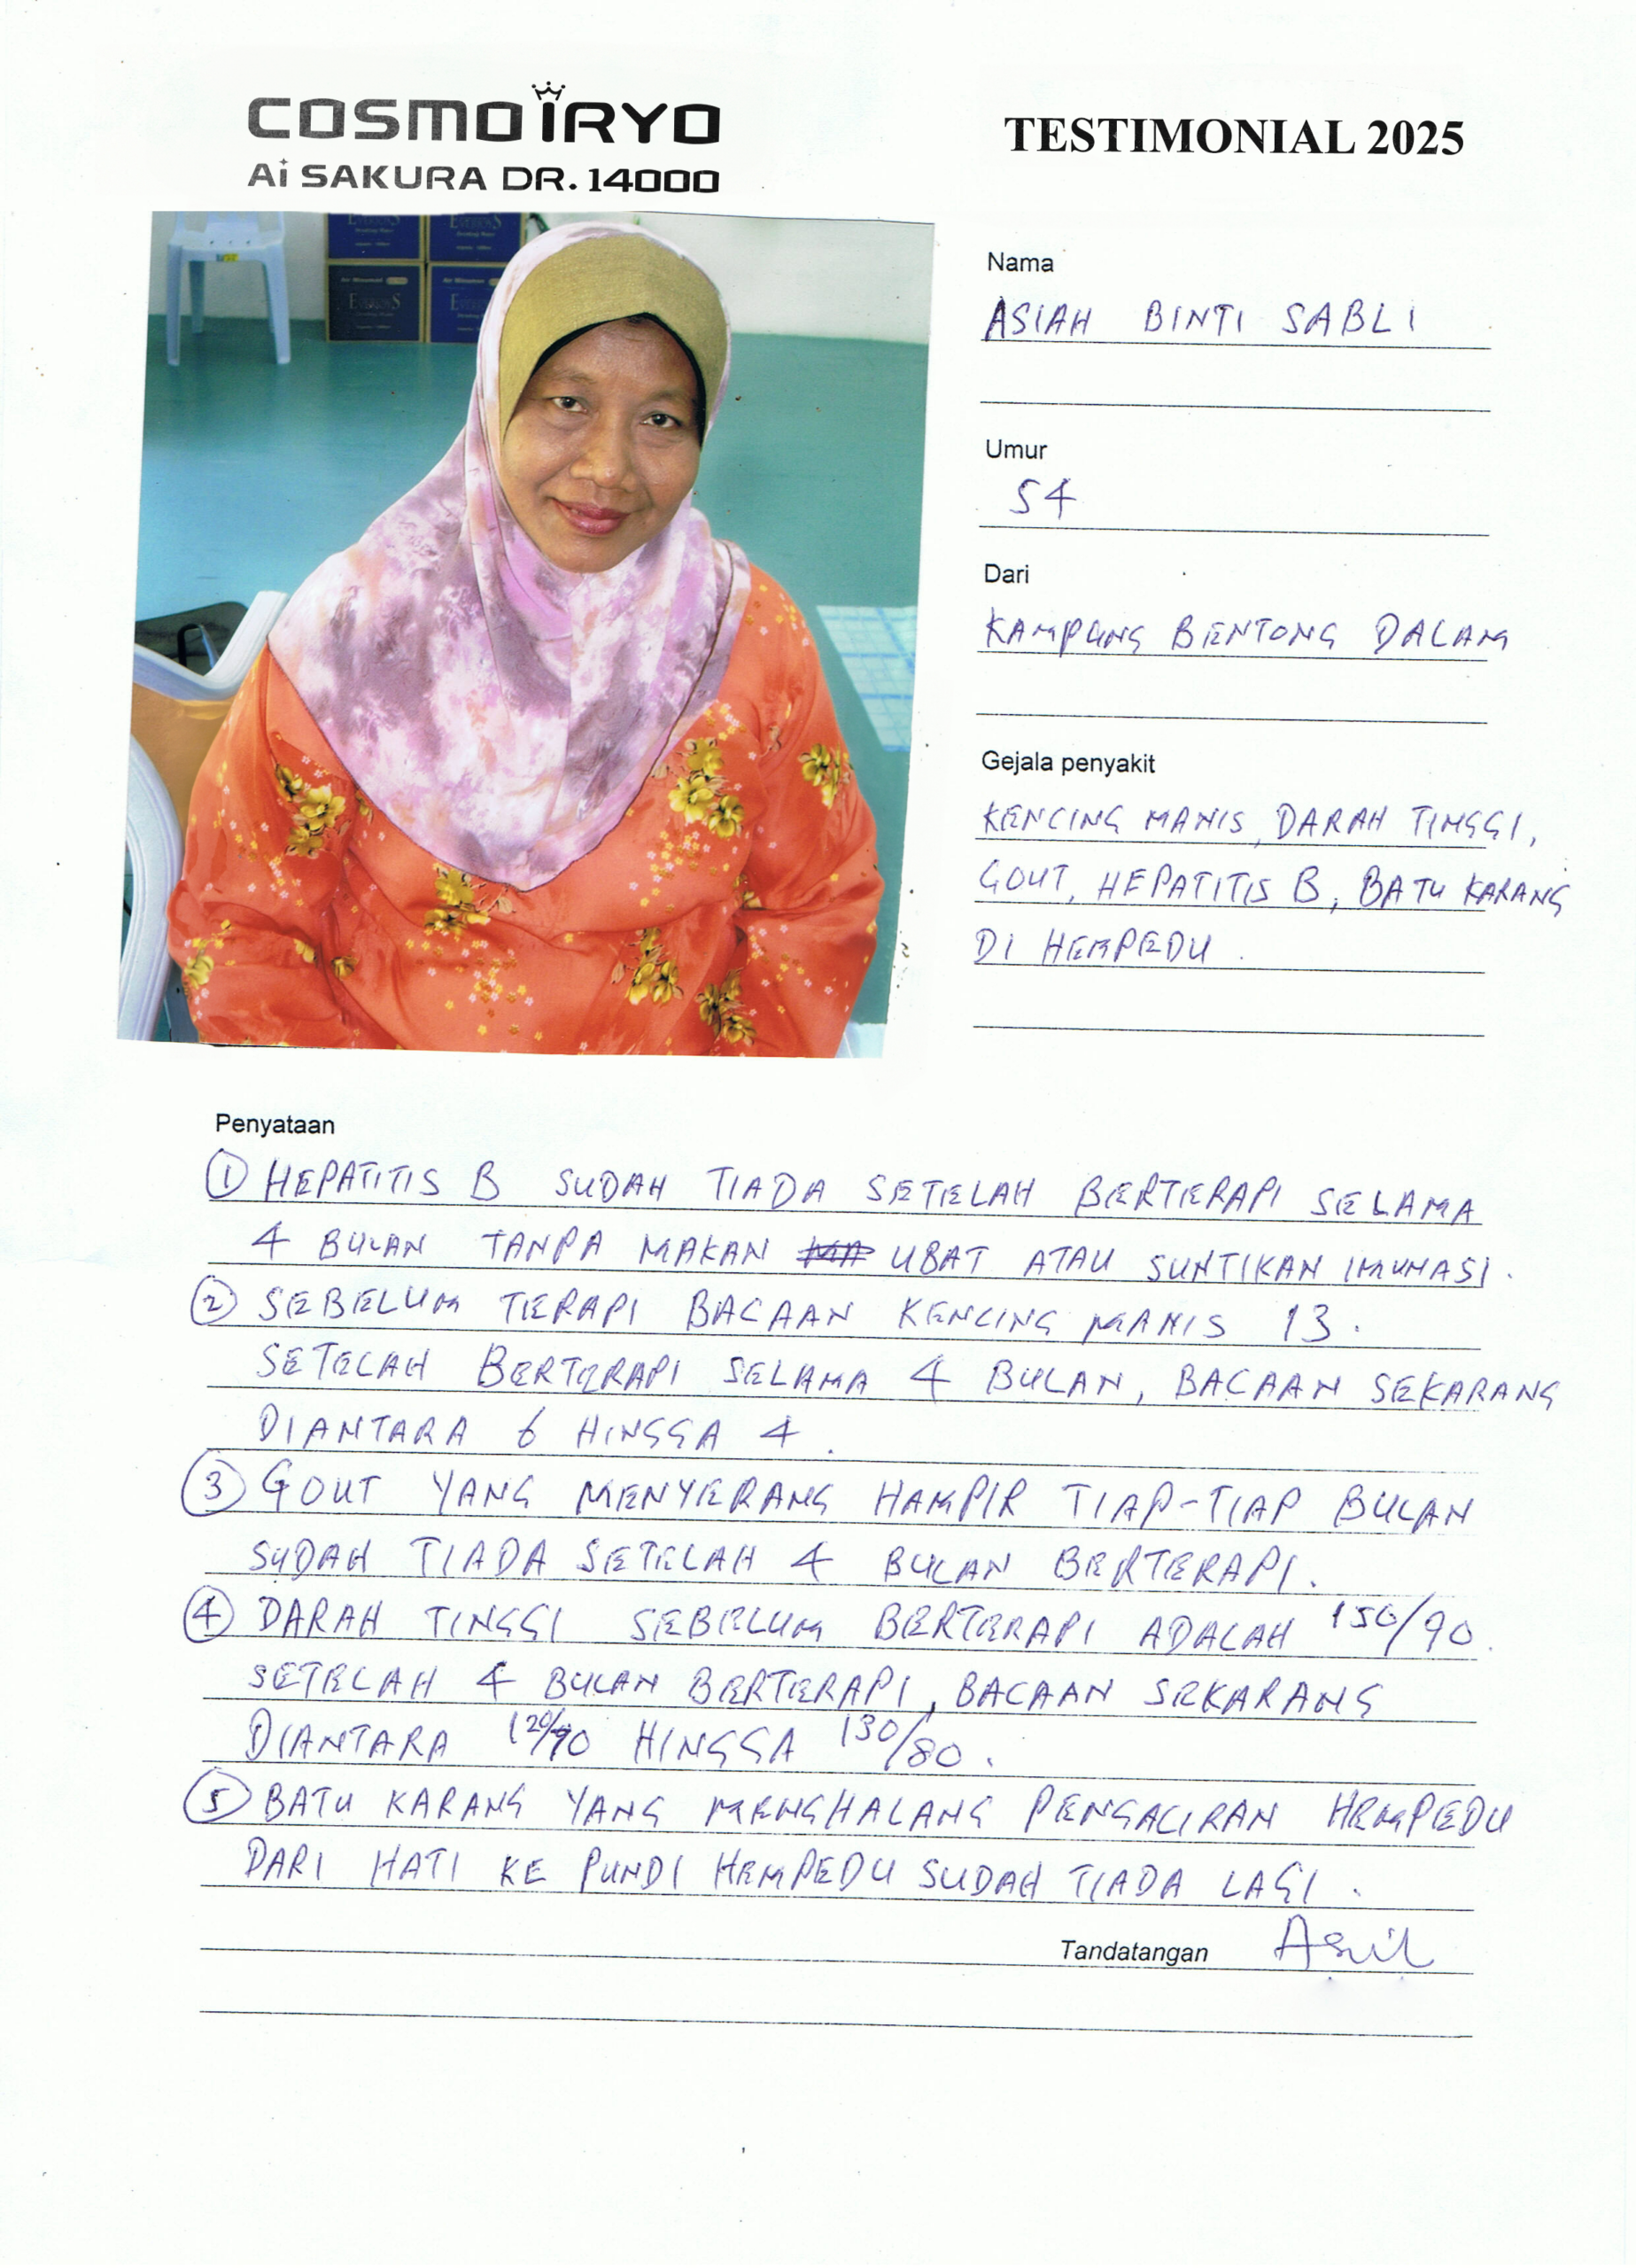 COSMO iRYO
Ai SAKURA DR. 14000
TESTIMONIAL 2025
Nama
ASIAH BINTI SABLI
Umur
54
Dari
KAMPUNG BENTONG DALAM
Gejala penyakit
KENCING MANIS, DARAH TINGGI,
GOUT, HEPATITIS B, BATU KARANG
DI HEMPEDU.
Penyataan
① HEPATITIS B SUDAH TIADA SETELAH BERTERAPI SELAMA
4 BULAN TANPA MAKAN UBAT ATAU SUNTIKAN IMUNASI.
② SEBELUM TERAPI BACAAN KENCING MANIS 13.
SETELAH BERTERAPI SELAMA 4 BULAN, BACAAN SEKARANG
DIANTARA 6 HINGGA 4.
③ GOUT YANG MENYERANG HAMPIR TIAP-TIAP BULAN
SUDAH TIADA SETELAH 4 BULAN BERTERAPI.
④ DARAH TINGGI SEBELUM BERTERAPI ADALAH 150/90.
SETELAH 4 BULAN BERTERAPI, BACAAN SEKARANG
DIANTARA HINGGA 130/80.
⑤ BATU KARANG YANG MENGHALANG PENGALIRAN HEMPEDU
DARI HATI KE PUNDI HEMPEDU SUDAH TIADA LAGI.
Tandatangan